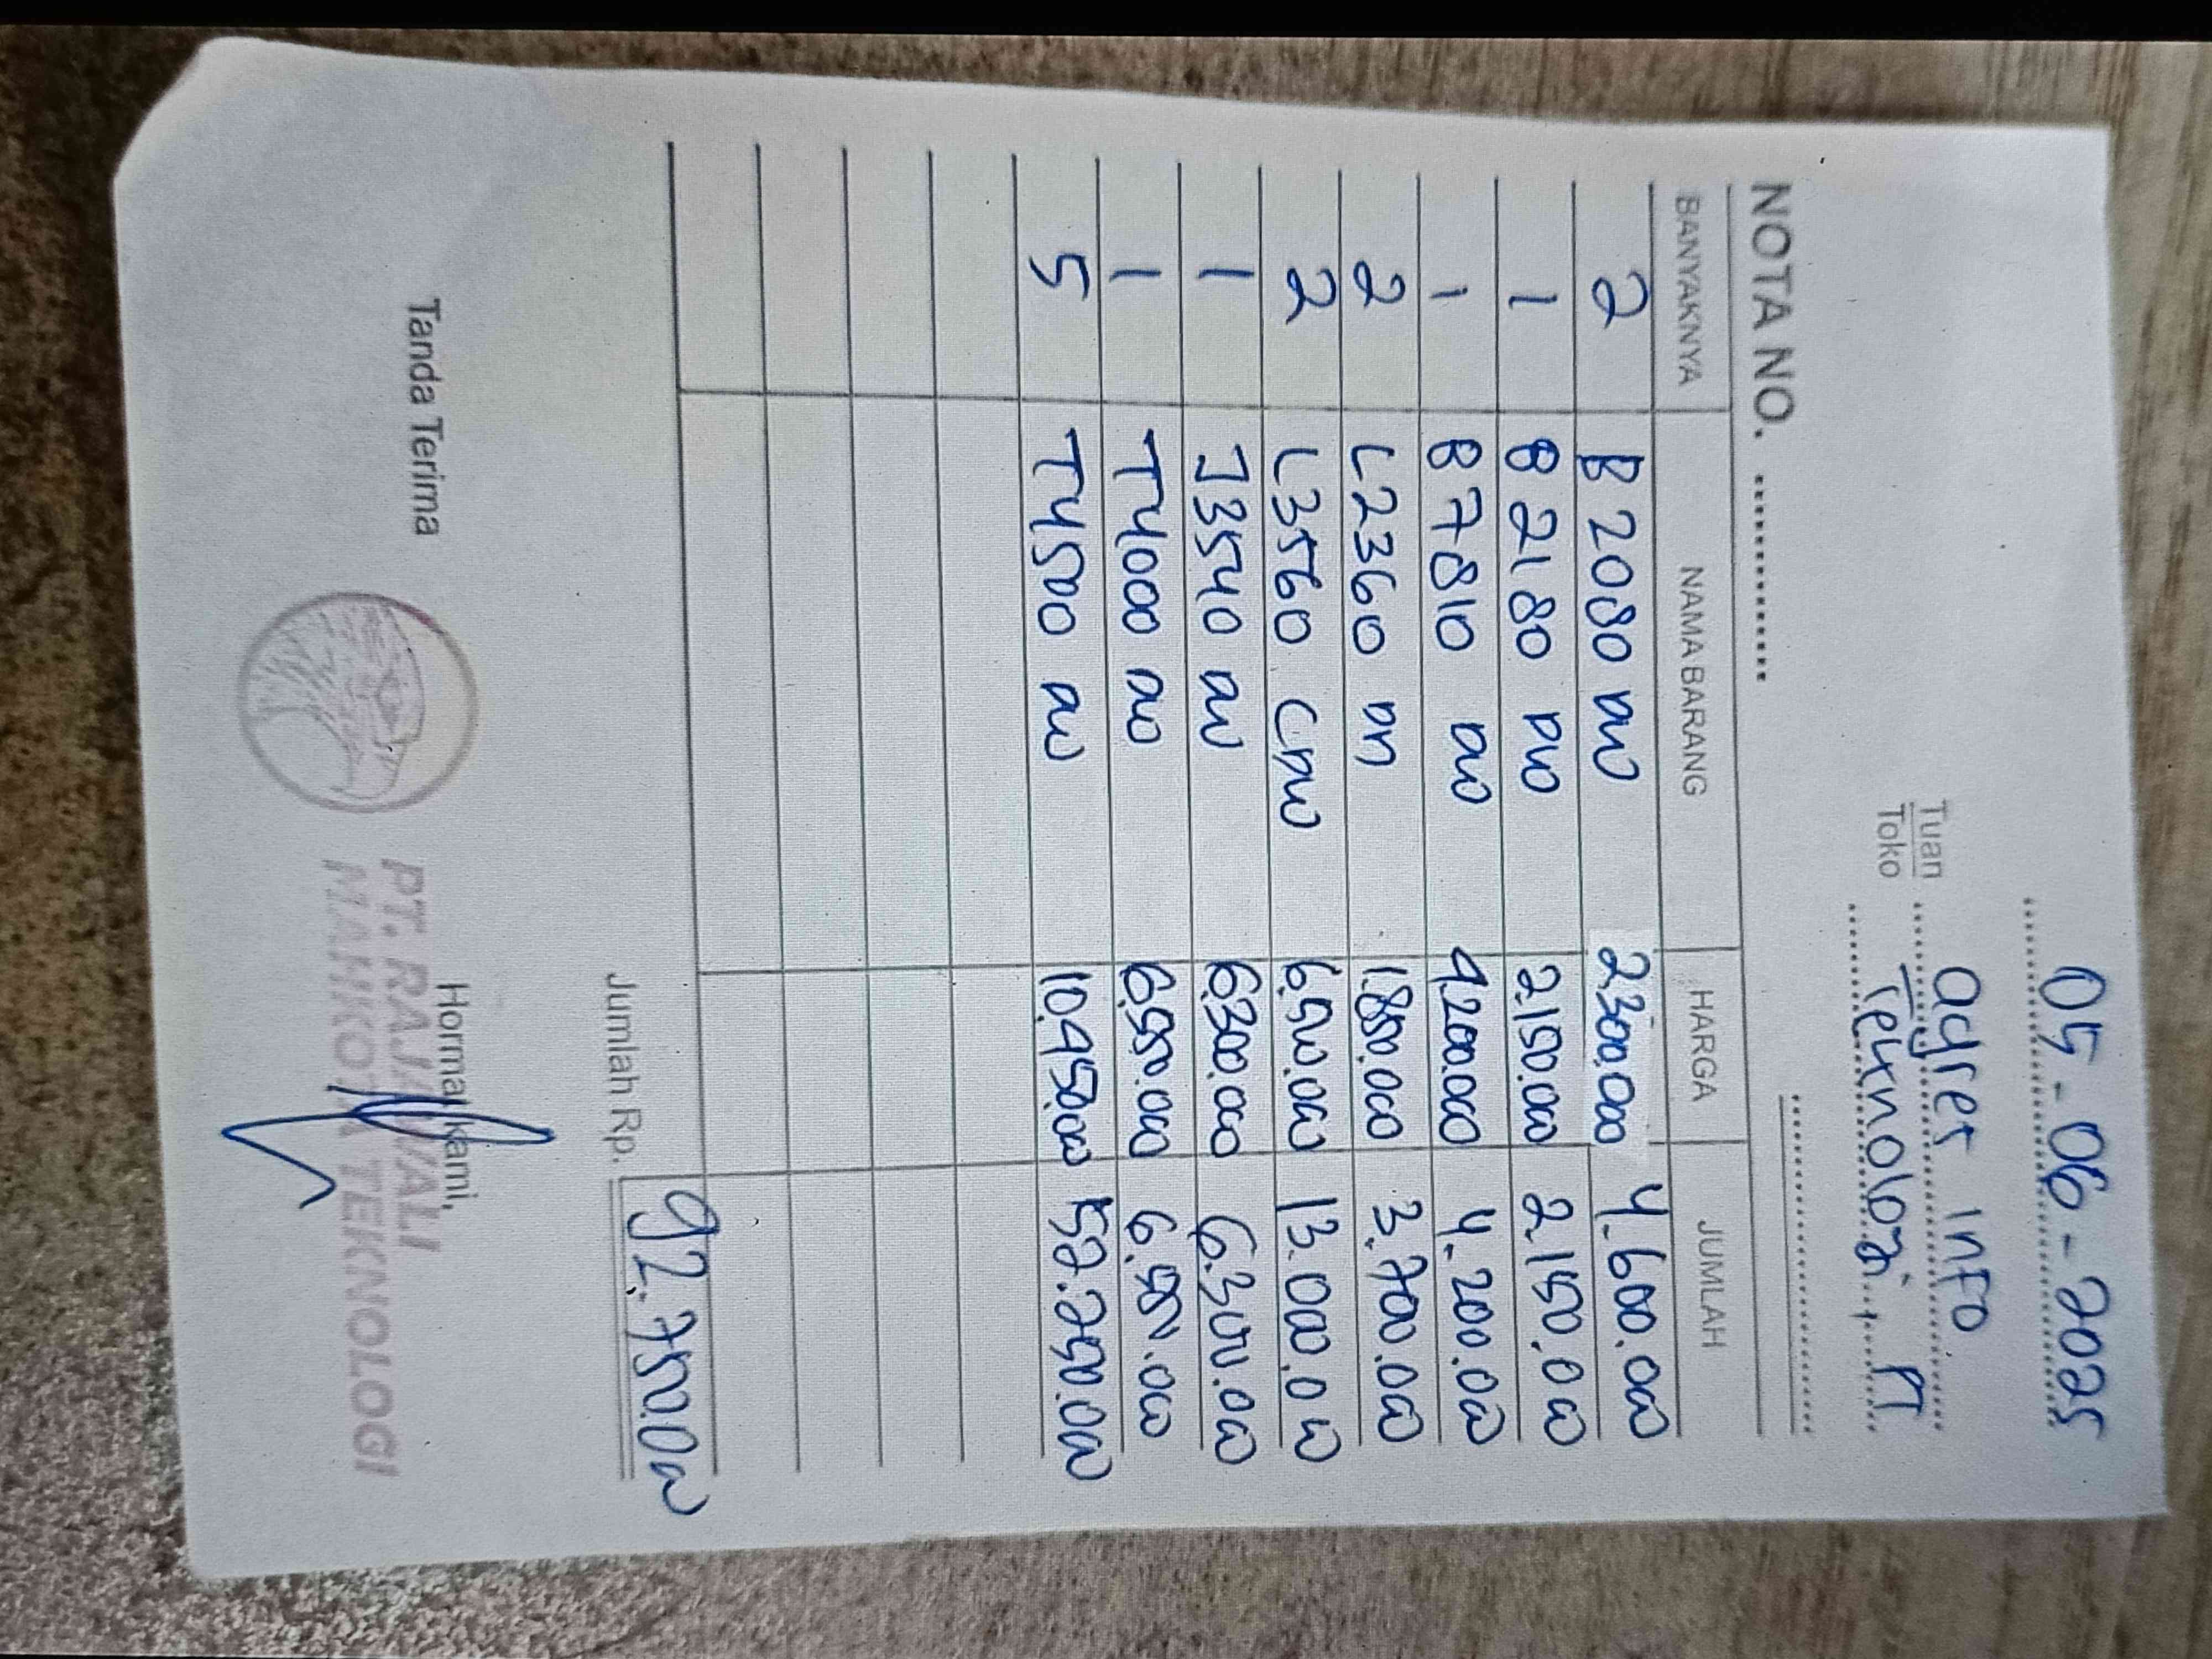 05-06-2025
Tuan agres info
Toko Teknologi, PT
NOTA NO.
BANYAKNYA NAMA BARANG HARGA JUMLAH
2 B 2080 DW 2.300.000 4.600.000
1 B 2180 DW 2.150.000 2.150.000
1 B 7810 DW 4.200.000 4.200.000
2 L2360 DN 1.850.000 3.700.000
2 L3560 CDW 6.500.000 13.000.000
1 J3540 DW 6.300.000 6.300.000
1 T4000 DW 6.550.000 6.550.000
5 T4500 DW 10.450.000 52.250.000
Jumlah Rp. 92.750.000
Tanda Terima Hormat kami,
PT. RAJAWALI
MAHKOTA TEKNOLOGI